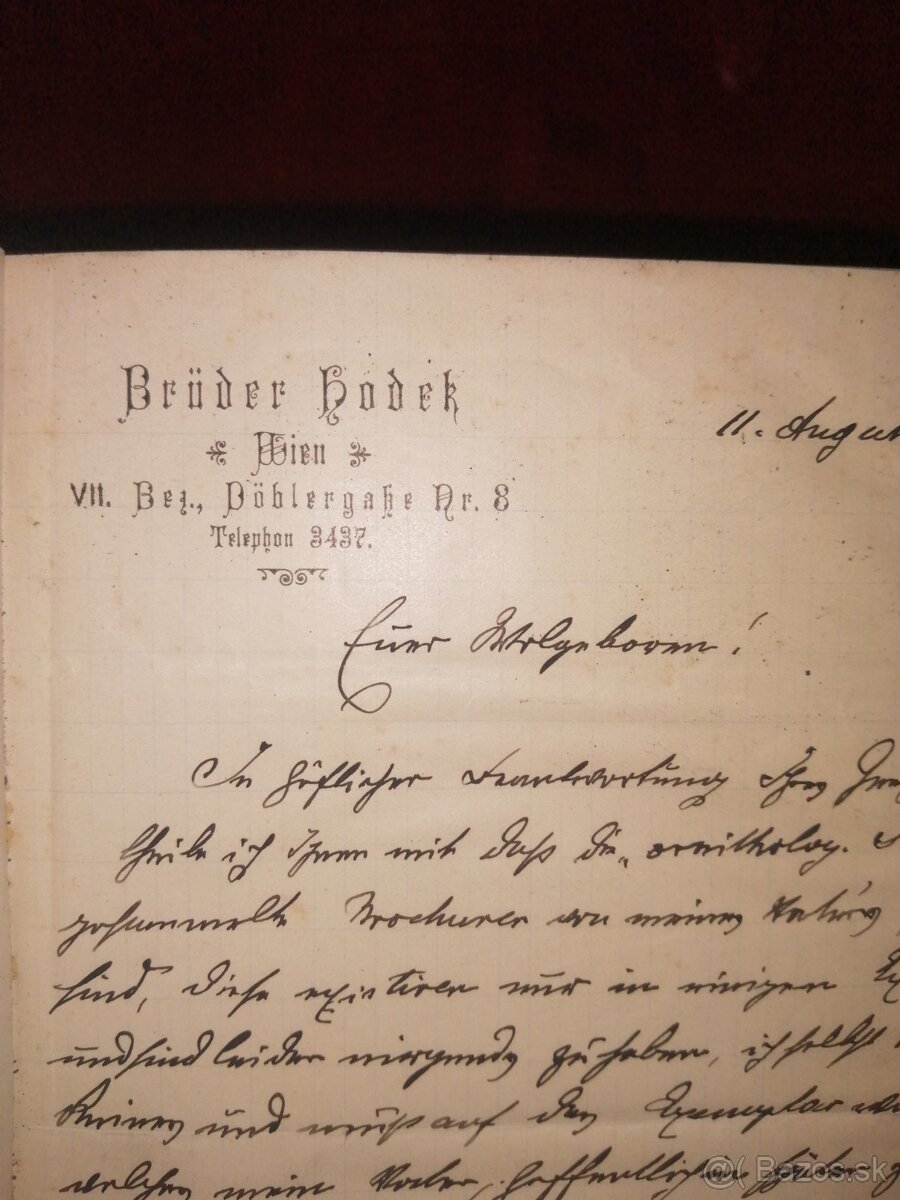 Brüder Hodek
Wien
VII. Bez., Döblergaße Nr. 8
Telephon 3437.
11. Augus
Euer Wolgeboren!
In höflicher Beantwortung Ihres
theile ich Ihnen mit daß die „ornitholog.
gesammelte Brochuren von meines Vaters
sind, diese existiren nur in einigen Ex
und sind leider nirgends zu haben, ich selbst
Keines und muß auf das Exemplar
welches mein Vater, hoffentlich
@( Bazos.sk